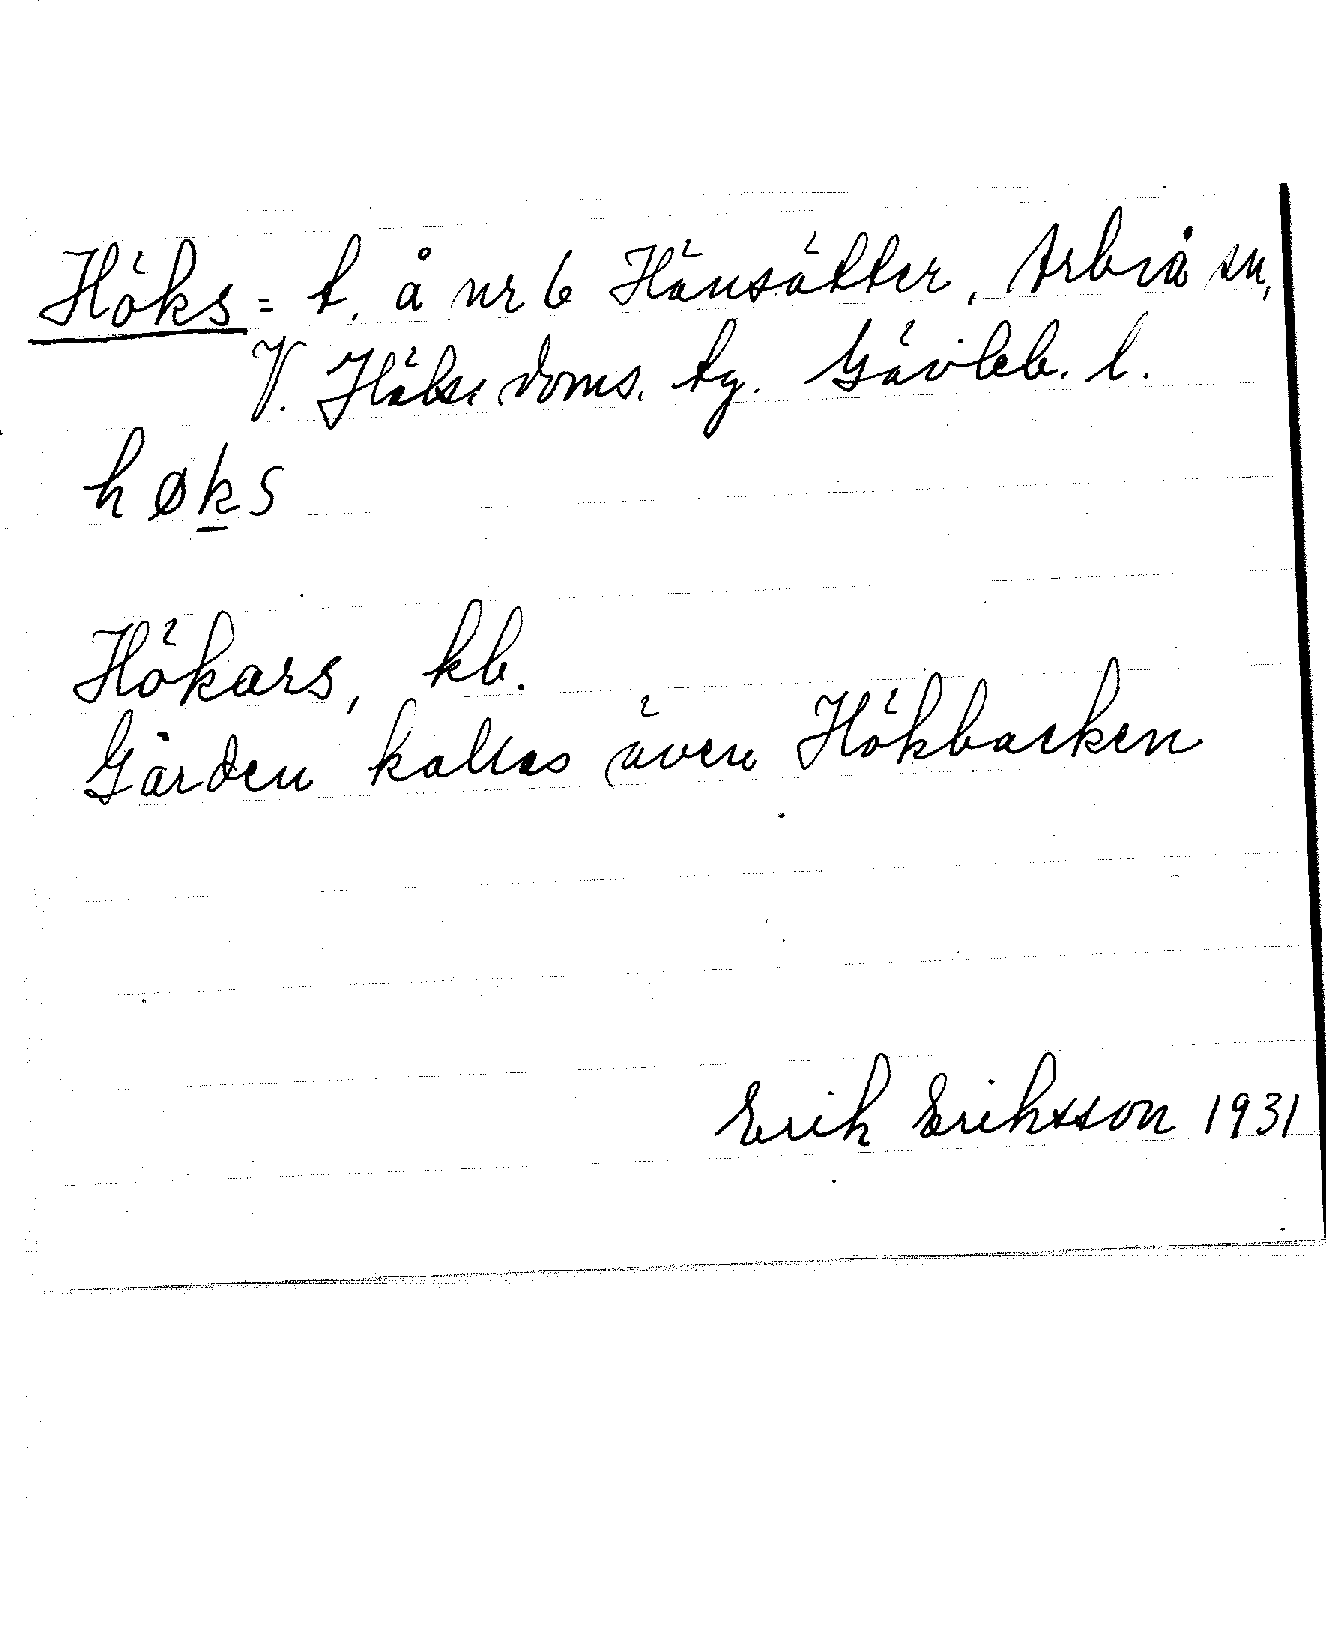 Höks = t. å nr 6 Hänsätter, Arbrå sn,
V. Hälse doms. tg. Gävleb. l.
høks
Hökars, kb.
Gården kallas även Hökbacken
Erik Eriksson 1931